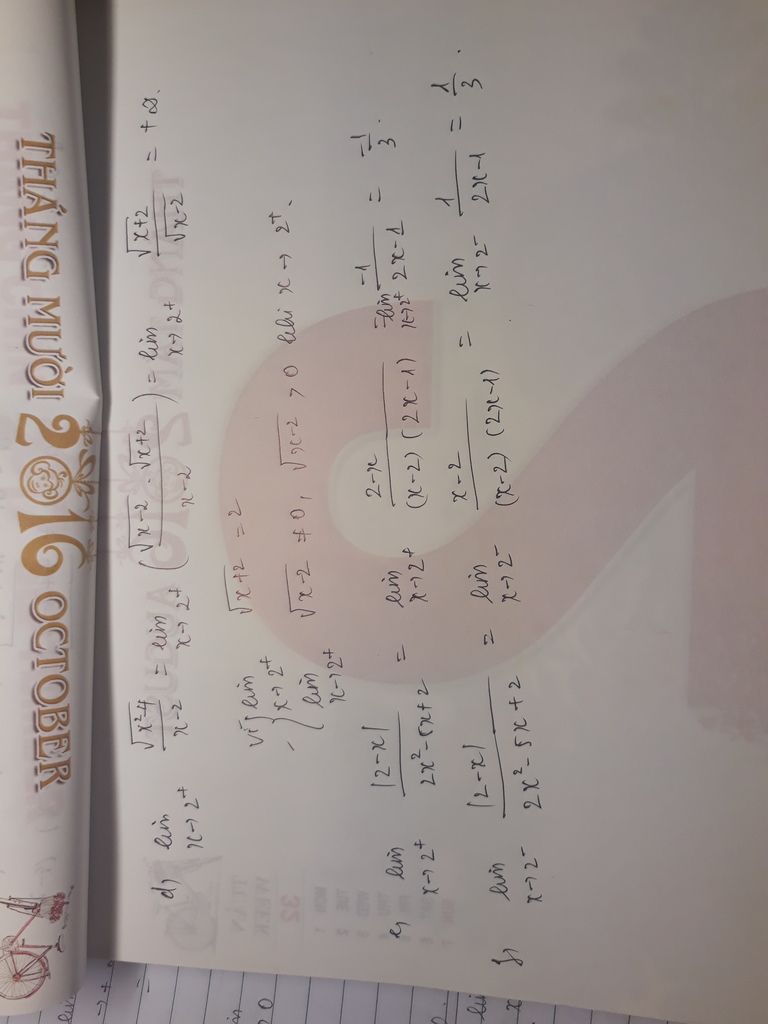 THÁNG MƯỜI 2016 OCTOBER
d, lim x→2⁺ √(x²-4)/(x-2) = lim x→2⁺ (√(x-2) . √(x+2)/(x-2)) = lim x→2⁺ √(x+2)/√(x-2) = +∞.
vì { lim x→2⁺ √(x+2) = 2
lim x→2⁺ √(x-2) ≠ 0, √(x-2) > 0 khi x → 2⁺.
e, lim x→2⁺ |2-x|/(2x²-5x+2) = lim x→2⁺ (2-x)/((x-2)(2x-1)) = lim x→2⁺ -1/(2x-1) = -1/3.
f, lim x→2⁻ |2-x|/(2x²-5x+2) = lim x→2⁻ (x-2)/((x-2)(2x-1)) = lim x→2⁻ 1/(2x-1) = 1/3.